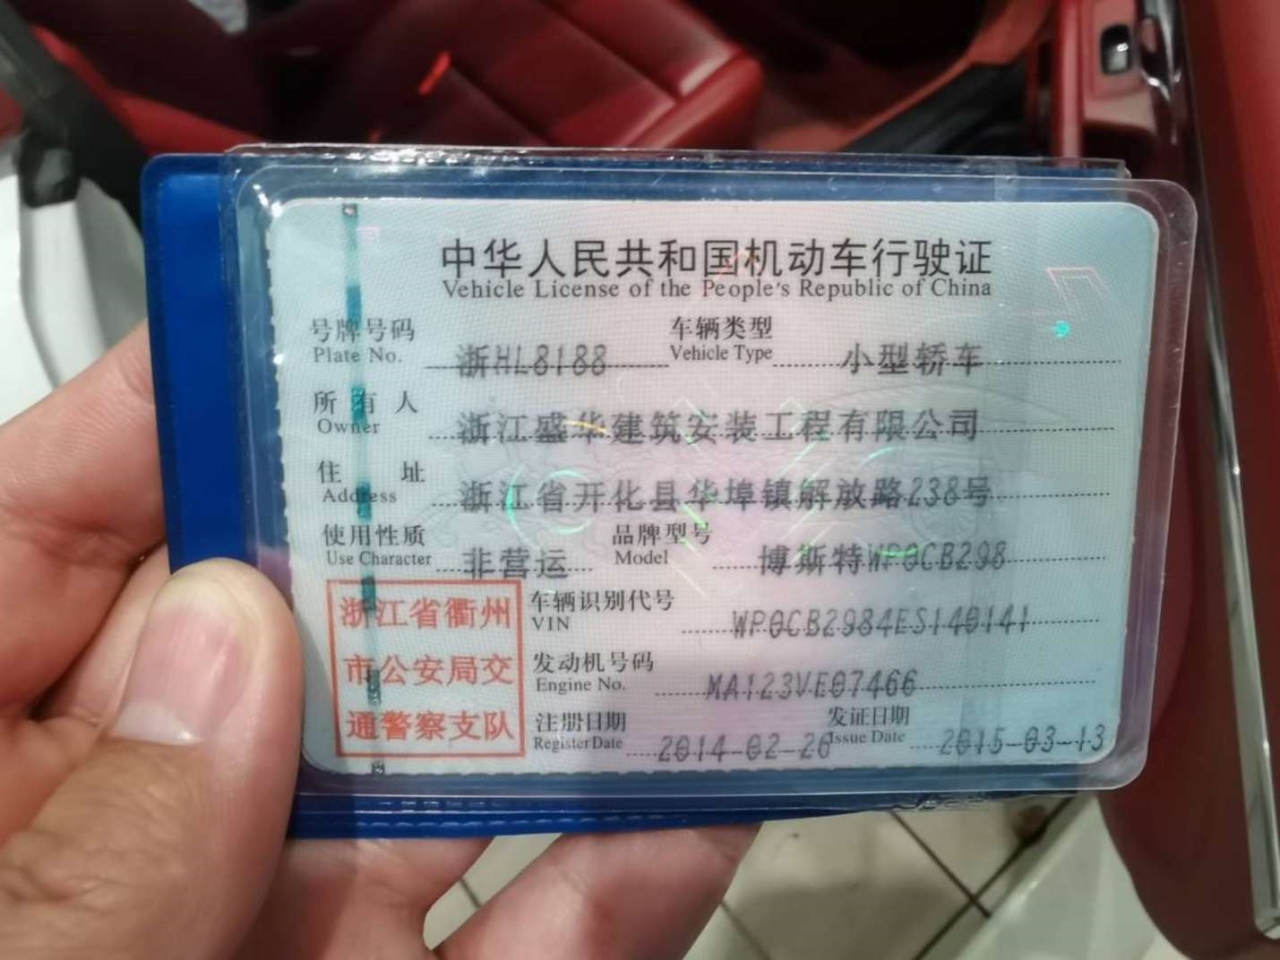 中华人民共和国机动车行驶证
Vehicle License of the People's Republic of China
号牌号码 浙HL8188 车辆类型 小型轿车
Plate No. Vehicle Type
所有人 浙江盛华建筑安装工程有限公司
Owner
住址 浙江省开化县华埠镇解放路238号
Address
使用性质 非营运 品牌型号 博斯特WP0CB298
Use Character Model
浙江省衢州
市公安局交
通警察支队
车辆识别代号 WP0CB2984ES140141
VIN
发动机号码 MA123VE07466
Engine No.
注册日期 2014-02-26 发证日期 2015-03-13
Register Date Issue Date